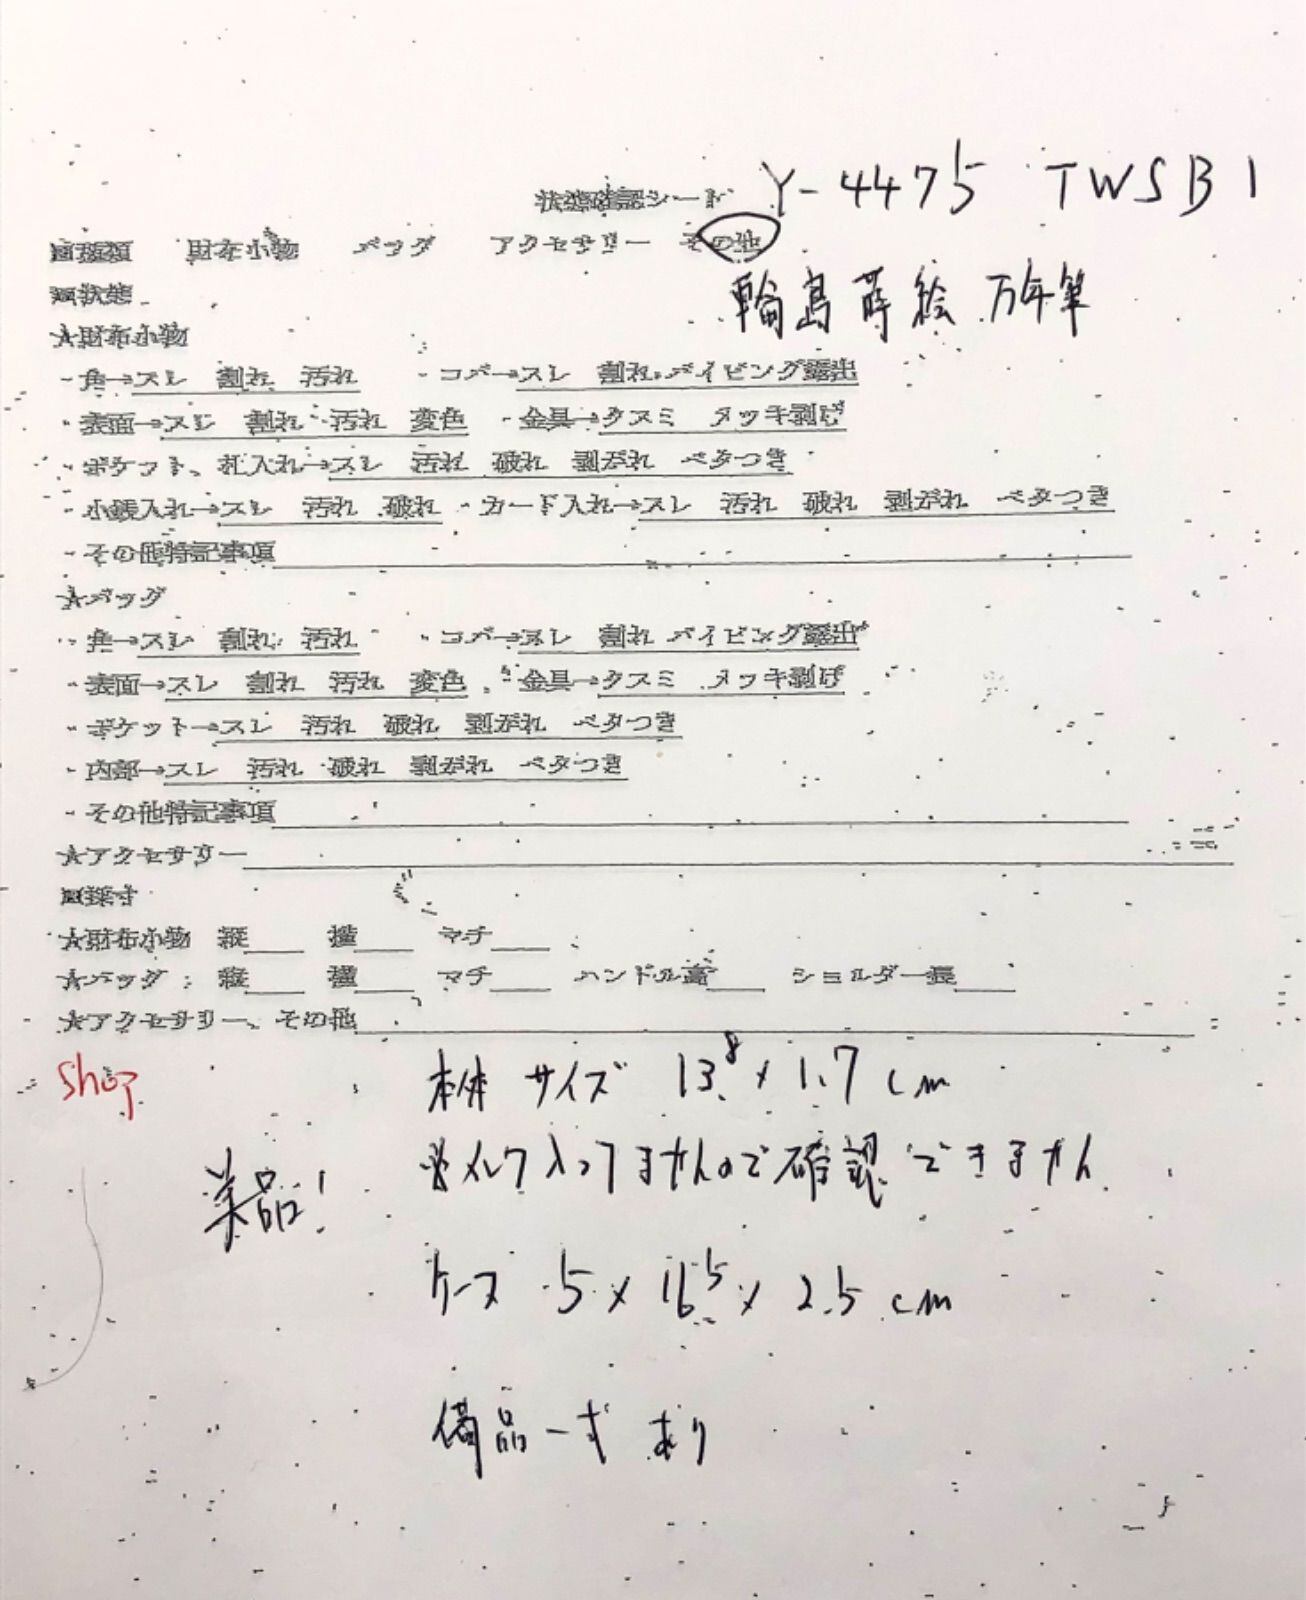 状態確認シート Y-4475 TWSBI
■種類 財布小物 バッグ アクセサリー その他
輪島蒔絵 万年筆
■状態
★財布小物
・角→スレ 割れ 汚れ ・コバ→スレ 割れ パイピング露出
・表面→スレ 割れ 汚れ 変色 ・金具→クスミ メッキ剥げ
・ポケット、札入れ→スレ 汚れ 破れ 剥がれ ベタつき
・小銭入れ→スレ 汚れ 破れ ・カード入れ→スレ 汚れ 破れ 剥がれ ベタつき
・その他特記事項
★バッグ
・角→スレ 割れ 汚れ ・コバ→スレ 割れ パイピング露出
・表面→スレ 割れ 汚れ 変色 ・金具→クスミ メッキ剥げ
・ポケット→スレ 汚れ 破れ 剥がれ ベタつき
・内部→スレ 汚れ 破れ 剥がれ ベタつき
・その他特記事項
★アクセサリー
■採寸
★財布小物 縦 横 マチ
★バッグ 縦 横 マチ ハンドル高 ショルダー長
★アクセサリー、その他
shop 本体サイズ 13.8 × 1.7 cm
※インク入ってませんので確認できません
美品!
ケース 5 × 16.5 × 2.5 cm
備品一式 あり